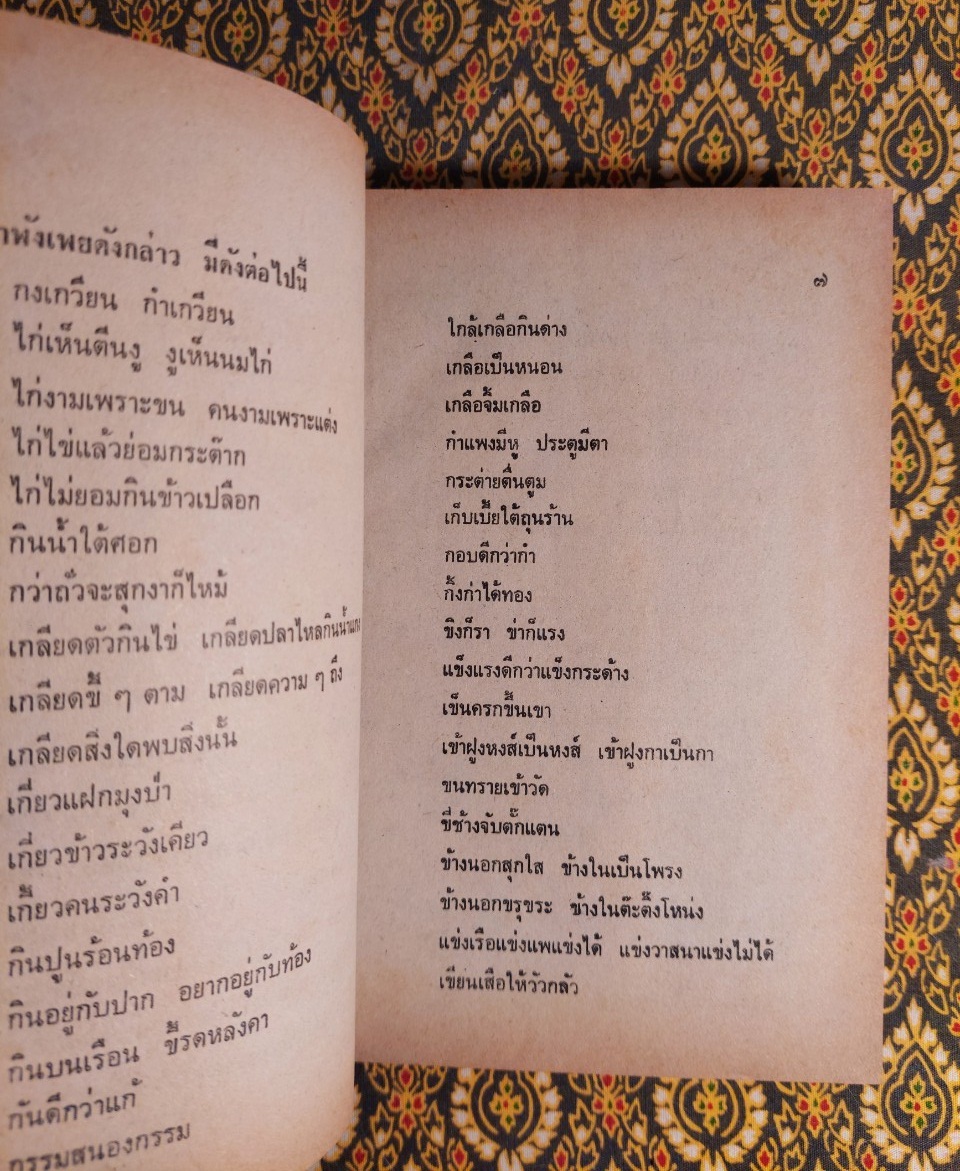 พังเพยดังกล่าว มีดังต่อไปนี้
กงเกวียน กำเกวียน
ไก่เห็นตีนงู งูเห็นนมไก่
ไก่งามเพราะขน คนงามเพราะแต่ง
ไก่ไข่แล้วย่อมกระต๊าก
ไก่ไม่ยอมกินข้าวเปลือก
กินน้ำใต้ศอก
กว่าถั่วจะสุกงาก็ไหม้
เกลียดตัวกินไข่ เกลียดปลาไหลกินน้ำแกง
เกลียดขี้ ๆ ตาม เกลียดความ ๆ ถึง
เกลียดสิ่งใดพบสิ่งนั้น
เกี่ยวแฝกมุงป่า
เกี่ยวข้าวระวังเคียว
เกี้ยวคนระวังคำ
กินปูนร้อนท้อง
กินอยู่กับปาก อยากอยู่กับท้อง
กินบนเรือน ขี้รดหลังคา
กันดีกว่าแก้
กรรมสนองกรรม
๗
ใกล้เกลือกินด่าง
เกลือเป็นหนอน
เกลือจิ้มเกลือ
กำแพงมีหู ประตูมีตา
กระต่ายตื่นตูม
เก็บเบี้ยใต้ถุนร้าน
กอบดีกว่ากำ
กิ้งก่าได้ทอง
ขิงก็รา ข่าก็แรง
แข็งแรงดีกว่าแข็งกระด้าง
เข็นครกขึ้นเขา
เข้าฝูงหงส์เป็นหงส์ เข้าฝูงกาเป็นกา
ขนทรายเข้าวัด
ขี่ช้างจับตั๊กแตน
ข้างนอกสุกใส ข้างในเป็นโพรง
ข้างนอกขรุขระ ข้างในต๊ะติ๊งโหน่ง
แข่งเรือแข่งแพแข่งได้ แข่งวาสนาแข่งไม่ได้
เขียนเสือให้วัวกลัว